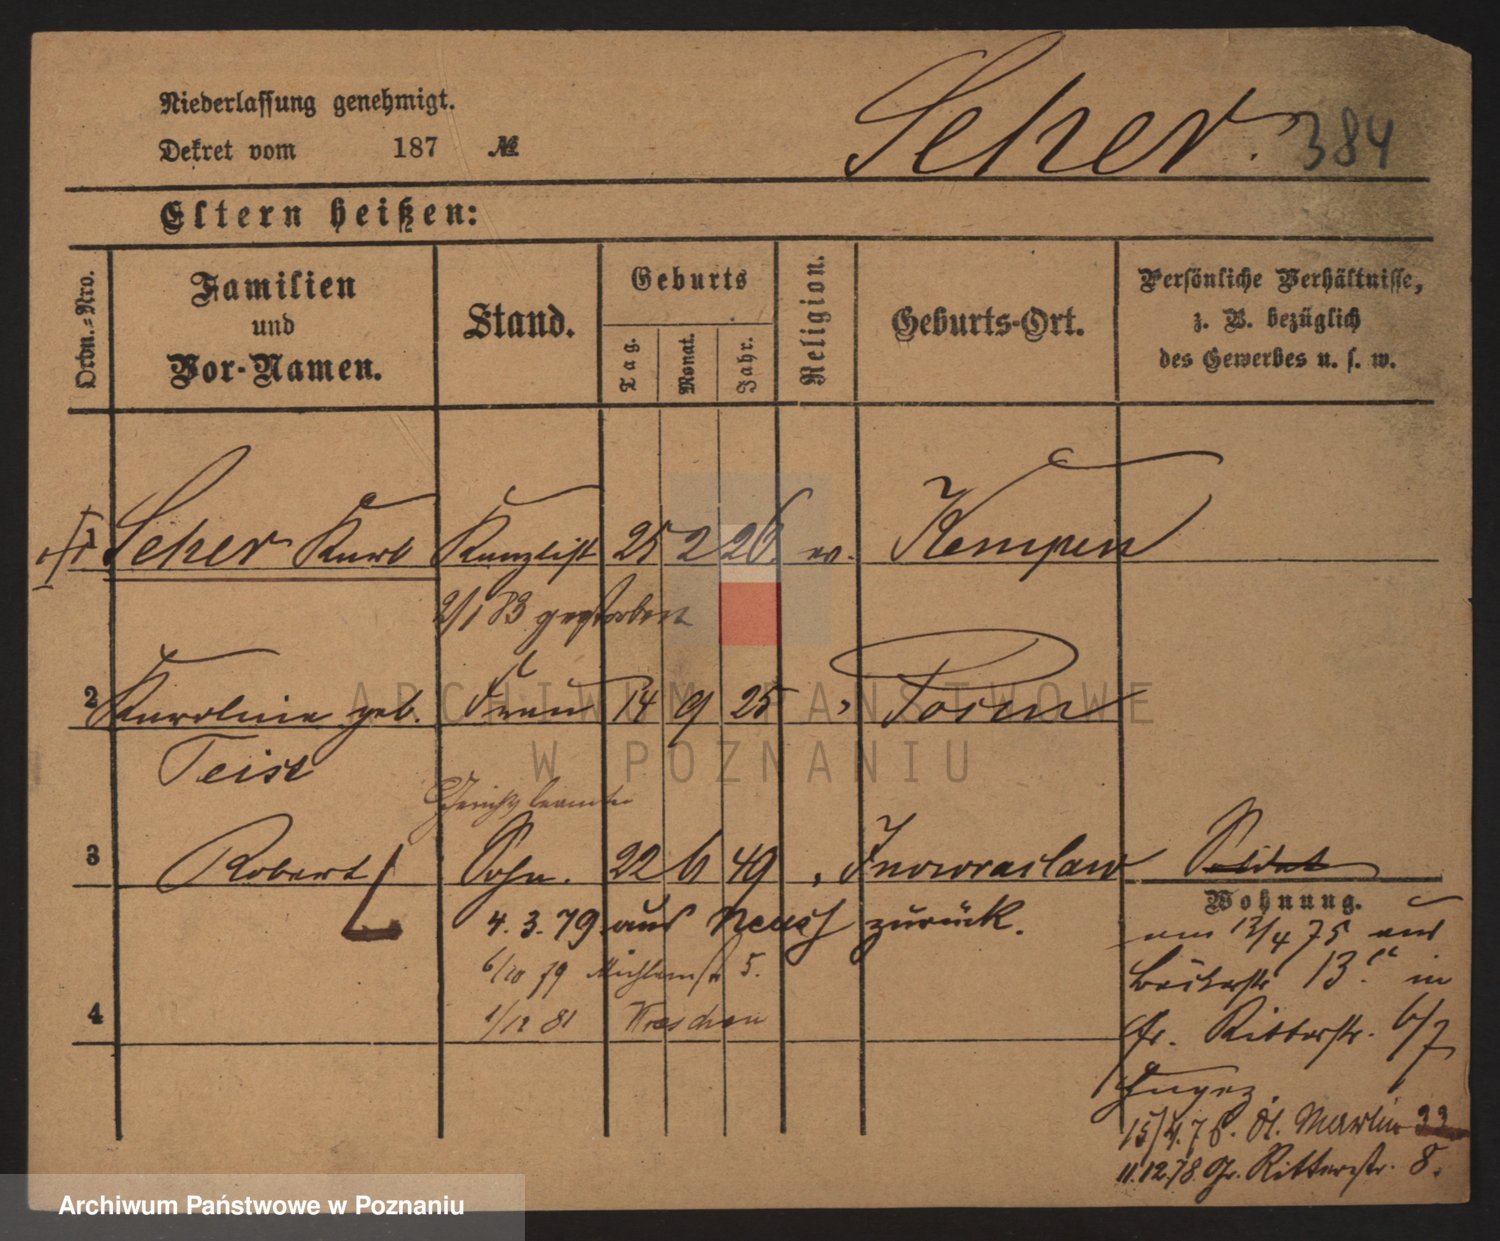 Niederlassung genehmigt.
Dekret vom 187 №
Scher. 384
Eltern heißen:
Ordn.=Nro.
Familien
und
Vor-Namen.
Stand.
Geburts
Tag.
Monat.
Jahr.
Religion.
Geburts-Ort.
Persönliche Verhältnisse,
z. B. bezüglich
des Gewerbes u. s. w.
1 Scher Karl Kanzlist 25 2 26 ev. Kempen
2/1 83 gestorben
2 Karoline geb. Frau 14 9 25 " Posen
Teist
3 Robert Sohn. 22 6 49 " Inowraclaw Soldat
Wohnung.
4. 3. 79 aus zurück.
6/10 79 5.
4 1/12 81 Wreschen
13/4 75 aus
13. in
Gr. Ritterstr. 6/7
15/4. 76. St. Martin 33
11.12.78 Gr. Ritterstr. 8.
ARCHIWUM PAŃSTWOWE
W POZNANIU
Archiwum Państwowe w Poznaniu